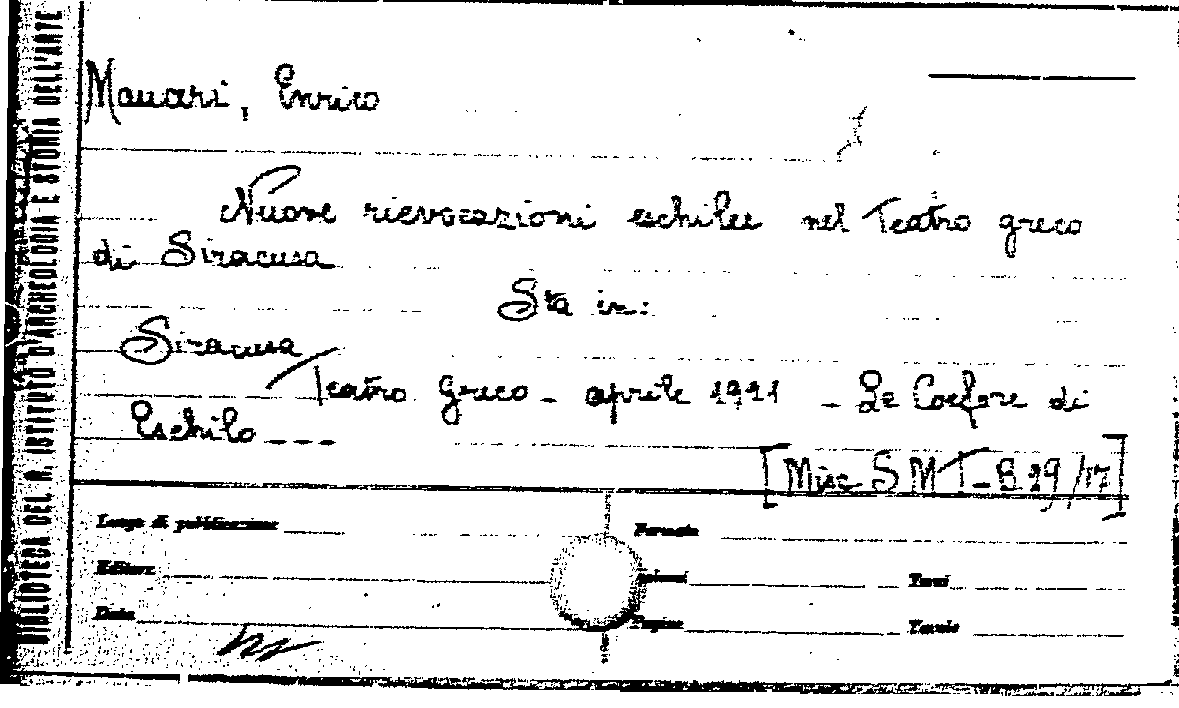 BIBLIOTECA DEL R. ISTITUTO D'ARCHEOLOGIA E STORIA DELL'ARTE
Mauceri, Enrico
Nuove rievocazioni eschilee nel Teatro greco
di Siracusa
Sta in:
Siracusa
Teatro Greco - aprile 1921 - Le Coefore di
Eschilo ---
[Misc S M T - B. 29/17]
Luogo di pubblicazione
Formato
Editore
Tomi
Data
Pagine
Tavole